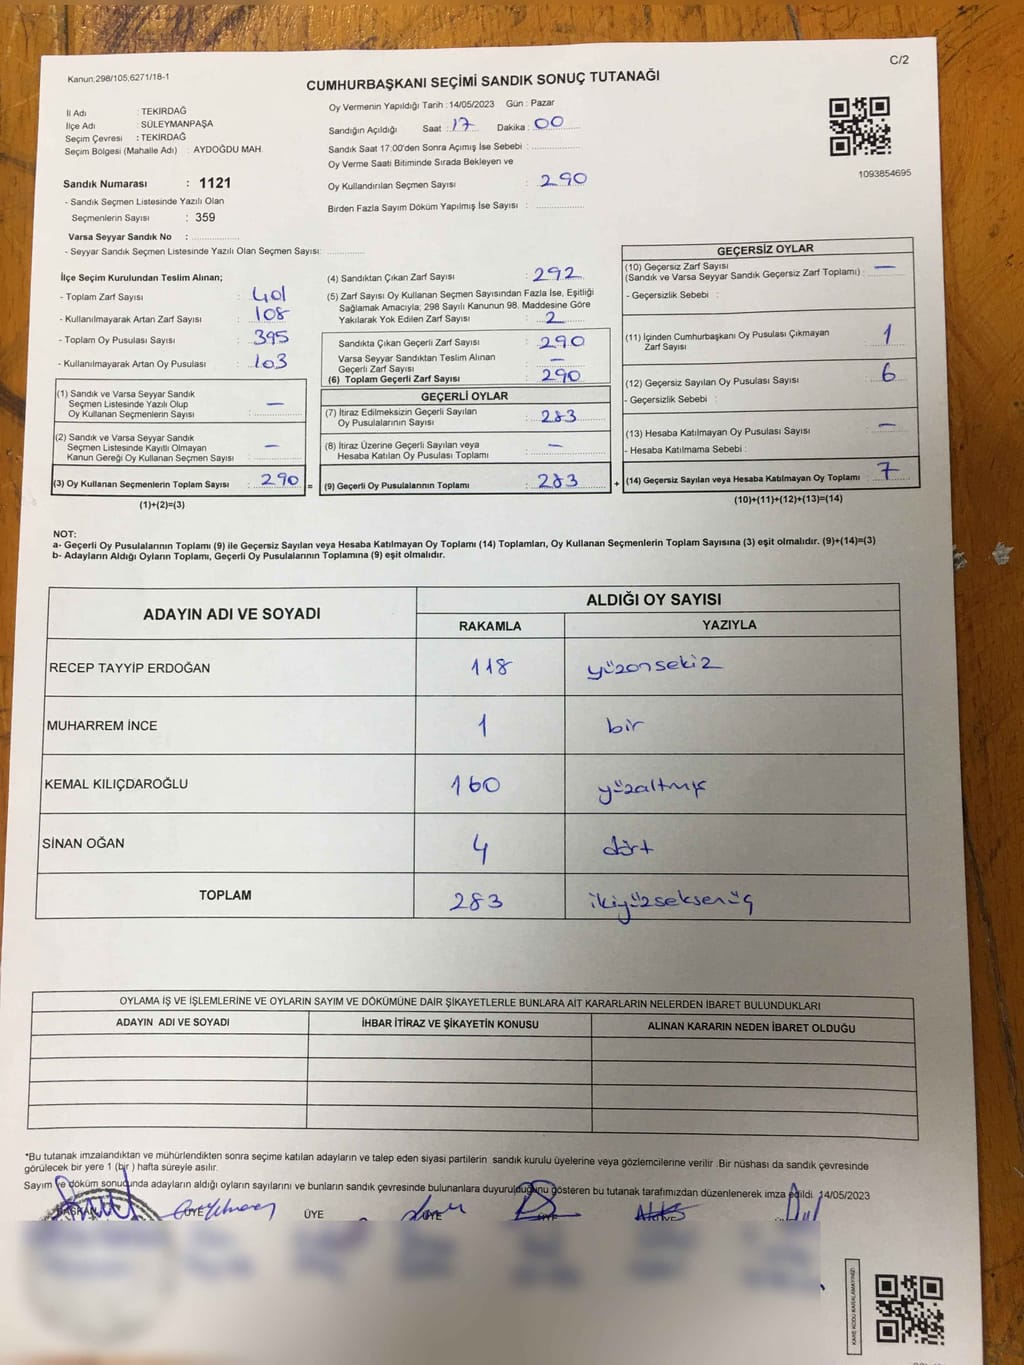 Kanun:298/105;6271/18-1
C/2
CUMHURBAŞKANI SEÇİMİ SANDIK SONUÇ TUTANAĞI
İl Adı : TEKİRDAĞ
İlçe Adı : SÜLEYMANPAŞA
Seçim Çevresi : TEKİRDAĞ
Seçim Bölgesi (Mahalle Adı) : AYDOĞDU MAH.
Sandık Numarası : 1121
- Sandık Seçmen Listesinde Yazılı Olan
Seçmenlerin Sayısı : 359
Varsa Seyyar Sandık No :
- Seyyar Sandık Seçmen Listesinde Yazılı Olan Seçmen Sayısı:
Oy Vermenin Yapıldığı Tarih : 14/05/2023 Gün : Pazar
Sandığın Açıldığı Saat : 17 Dakika : 00
Sandık Saat 17:00'den Sonra Açımış İse Sebebi :
Oy Verme Saati Bitiminde Sırada Bekleyen ve
Oy Kullandırılan Seçmen Sayısı : 290
Birden Fazla Sayım Döküm Yapılmış İse Sayısı :
1093854695
İlçe Seçim Kurulundan Teslim Alınan;
- Toplam Zarf Sayısı : 401
- Kullanılmayarak Artan Zarf Sayısı : 108
- Toplam Oy Pusulası Sayısı : 395
- Kullanılmayarak Artan Oy Pusulası : 103
(1) Sandık ve Varsa Seyyar Sandık
Seçmen Listesinde Yazılı Olup
Oy Kullanan Seçmenlerin Sayısı : —
(2) Sandık ve Varsa Seyyar Sandık
Seçmen Listesinde Kayıtlı Olmayan
Kanun Gereği Oy Kullanan Seçmen Sayısı : —
(3) Oy Kullanan Seçmenlerin Toplam Sayısı : 290 =
(1)+(2)=(3)
(4) Sandıktan Çıkan Zarf Sayısı : 292
(5) Zarf Sayısı Oy Kullanan Seçmen Sayısından Fazla İse, Eşitliği
Sağlamak Amacıyla; 298 Sayılı Kanunun 98. Maddesine Göre
Yakılarak Yok Edilen Zarf Sayısı : 2
Sandıkta Çıkan Geçerli Zarf Sayısı : 290
Varsa Seyyar Sandıktan Teslim Alınan
Geçerli Zarf Sayısı : —
(6) Toplam Geçerli Zarf Sayısı : 290
GEÇERLİ OYLAR
(7) İtiraz Edilmeksizin Geçerli Sayılan
Oy Pusulalarının Sayısı : 283
(8) İtiraz Üzerine Geçerli Sayılan veya
Hesaba Katılan Oy Pusulası Toplamı : —
(9) Geçerli Oy Pusulalarının Toplamı : 283 +
GEÇERSİZ OYLAR
(10) Geçersiz Zarf Sayısı
(Sandık ve Varsa Seyyar Sandık Geçersiz Zarf Toplamı) : —
- Geçersizlik Sebebi :
(11) İçinden Cumhurbaşkanı Oy Pusulası Çıkmayan
Zarf Sayısı : 1
(12) Geçersiz Sayılan Oy Pusulası Sayısı : 6
- Geçersizlik Sebebi :
(13) Hesaba Katılmayan Oy Pusulası Sayısı : —
- Hesaba Katılmama Sebebi :
(14) Geçersiz Sayılan veya Hesaba Katılmayan Oy Toplamı : 7
(10)+(11)+(12)+(13)=(14)
NOT:
a- Geçerli Oy Pusulalarının Toplamı (9) ile Geçersiz Sayılan veya Hesaba Katılmayan Oy Toplamı (14) Toplamları, Oy Kullanan Seçmenlerin Toplam Sayısına (3) eşit olmalıdır. (9)+(14)=(3)
b- Adayların Aldığı Oyların Toplamı, Geçerli Oy Pusulalarının Toplamına (9) eşit olmalıdır.
ADAYIN ADI VE SOYADI
ALDIĞI OY SAYISI
RAKAMLA YAZIYLA
RECEP TAYYİP ERDOĞAN 118 yüzonsekiz
MUHARREM İNCE 1 bir
KEMAL KILIÇDAROĞLU 160 yüzaltmış
SİNAN OĞAN 4 dört
TOPLAM 283 ikiyüzseksenüç
OYLAMA İŞ VE İŞLEMLERİNE VE OYLARIN SAYIM VE DÖKÜMÜNE DAİR ŞİKAYETLERLE BUNLARA AİT KARARLARIN NELERDEN İBARET BULUNDUKLARI
ADAYIN ADI VE SOYADI İHBAR İTİRAZ VE ŞİKAYETİN KONUSU ALINAN KARARIN NEDEN İBARET OLDUĞU
*Bu tutanak imzalandıktan ve mühürlendikten sonra seçime katılan adayların ve talep eden siyasi partilerin sandık kurulu üyelerine veya gözlemcilerine verilir .Bir nüshası da sandık çevresinde
görülecek bir yere 1 (bir ) hafta süreyle asılır.
Sayım ve döküm sonucunda adayların aldığı oyların sayılarını ve bunların sandık çevresinde bulunanlara duyurulduğunu gösteren bu tutanak tarafımızdan düzenlenerek imza edildi. 14/05/2023
BAŞKAN ÜYE ÜYE ÜYE ÜYE
KARE KODU KARALAMAYINIZ!